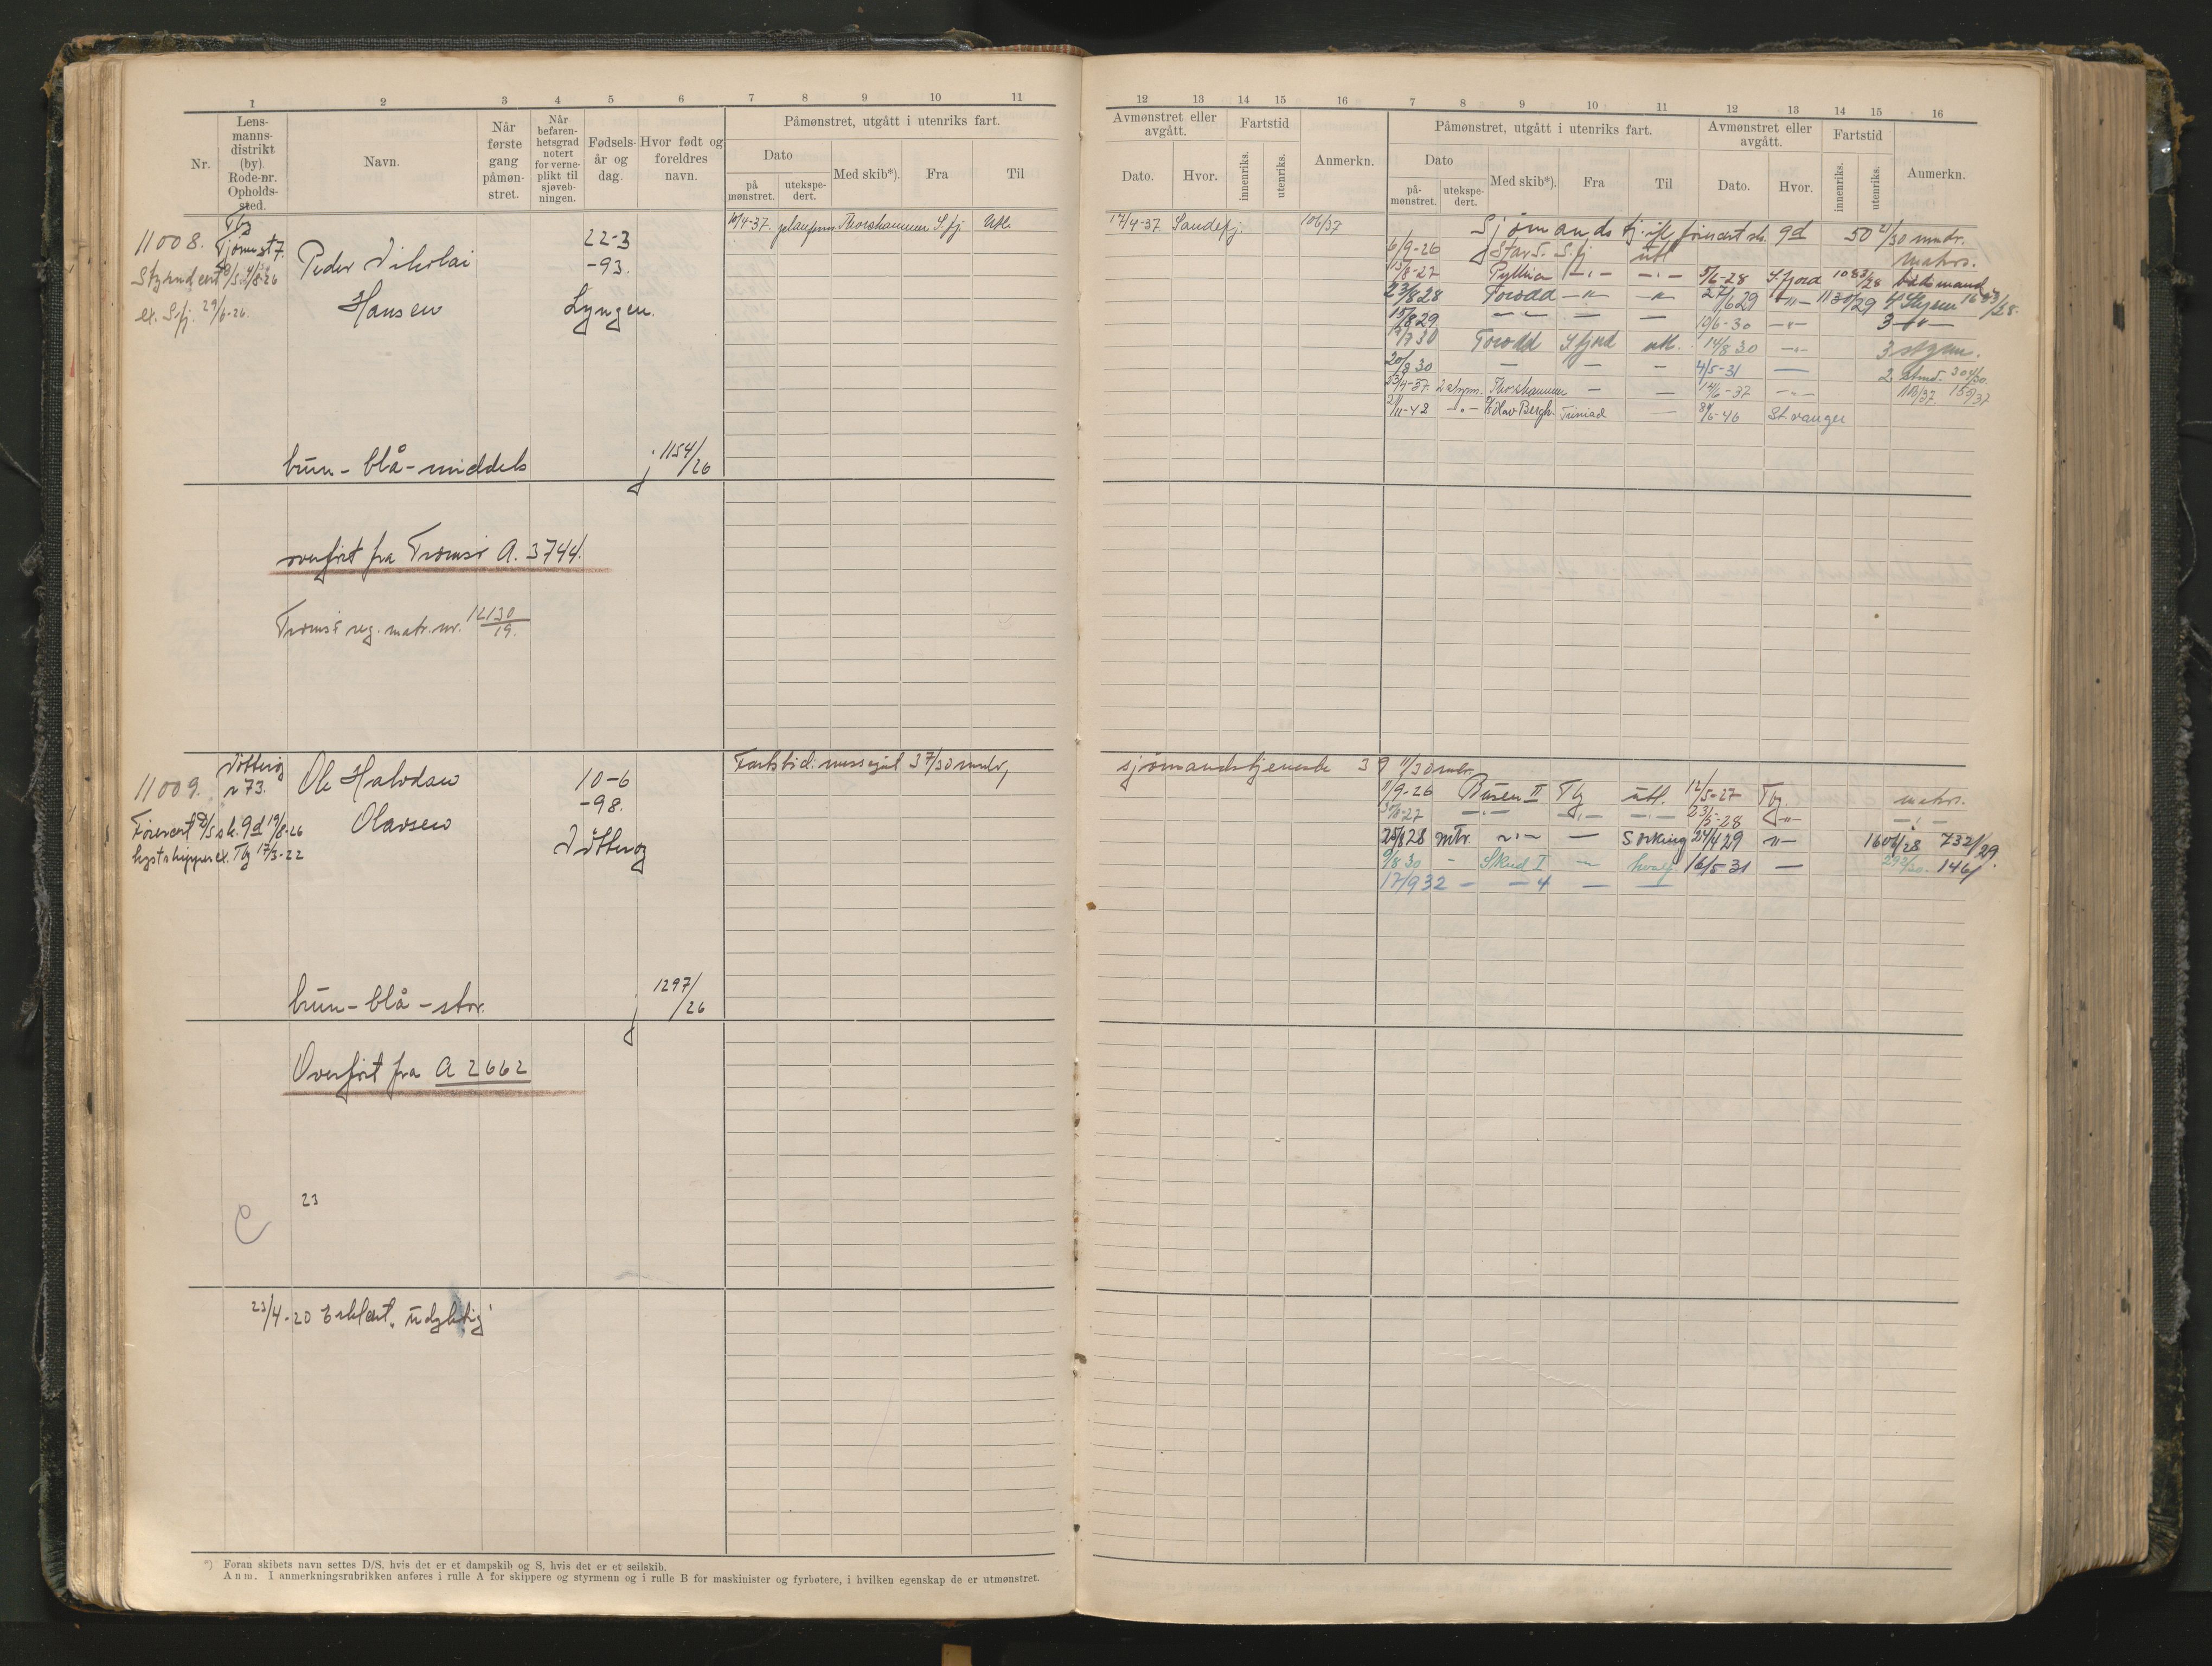 1 2 3 4 5 6 7 8 9 10 11
Nr.
Lens-
manns-
distrikt
(by).
Rode-nr.
Opholds-
sted.
Navn.
Når
første
gang
påmøn-
stret.
Når
befaren-
hetsgrad
notert
for verne-
plikt til
sjøveb-
ningen.
Fødsels-
år og
dag.
Hvor født og
foreldres
navn.
Påmønstret, utgått i utenriks fart.
Dato
på
mønstret.
utekspe-
dert.
Med skib*).
Fra
Til
Tbg
11008. Tjømest 7.
ex. S.fj. 29/6-26.
Peder Nikolai
Hansen
22-3
-93.
Lyngen.
10/4-37. Thorshammer S.fj. Utl.
brun - blå - middels
j. 1154/26
overført fra Tromsø A. 3744.
Tromsø reg. matr. nr. 12130/19.
11009. Nøtterøy
n 73.
Førercert 19/8-26
kystskipperex. Tbg 17/3-22
Ole Halvdan
Olavsen
10-6
-98.
Nøtterøy
Fartstid: 37/30 mndr,
brun - blå - stor.
j. 1297/26
Overført fra A 2662
23
C
23/4-20 Erklært "udyktig"
*) Foran skibets navn settes D/S, hvis det er et dampskib og S, hvis det er et seilskib.
Anm. I anmerkningsrubrikken anføres i rulle A for skippere og styrmenn og i rulle B for maskinister og fyrbøtere, i hvilken egenskap de er utmønstret.
12 13 14 15 16 7 8 9 10 11 12 13 14 15 16
Avmønstret eller
avgått.
Dato.
Hvor.
Fartstid
innenriks.
utenriks.
Anmerkn.
Påmønstret, utgått i utenriks fart.
Dato
på-
mønstret.
utekspe-
dert.
Med skib*).
Fra
Til
Avmønstret eller
avgått.
Dato.
Hvor.
Fartstid
innenriks.
utenriks.
Anmerkn.
17/4-37 Sandefj. 106/37
Sjømandstj. ifl. førercert sk. 9d 50 21/30 mndr.
6/9-26 Star I. S.fj utl matrs.
15/8-27 Pythia -"- -"- 5/6-28 S.fjord 1083/28 båtsmand
23/8 28 Torodd -"- -"- 27/6 29 -"- 1130/29
15/8 29 -"- - - 10/6-30 -"- 3 -"-
17/7 30 Torodd S.fjord utl. 14/8 30 -"- 3 styrm.
20/8 30 - - - 4/5-31 - 304/30.
23/4-37. 2 styrm. Thorshammer - - 14/6-37 -"- 155/37
21/11-42 -"- Olav Bergh. 8/6-46 Stavanger
sjømandstjeneste 39 11/30 mdr.
11/9-26 Busen II Tbg utl. 12/5-27 Tbg matrs.
30/8-27 -"- -"- -"- 23/5-28 -"- -"-
25/8 28 mtr. -"- - S orking 24/4 29 -"- 1606/28 732/29.
9/8 30 - Skud I -"- hvalf. 16/5-31 - 292/30. 146/
17/9 32 - - 4 - -